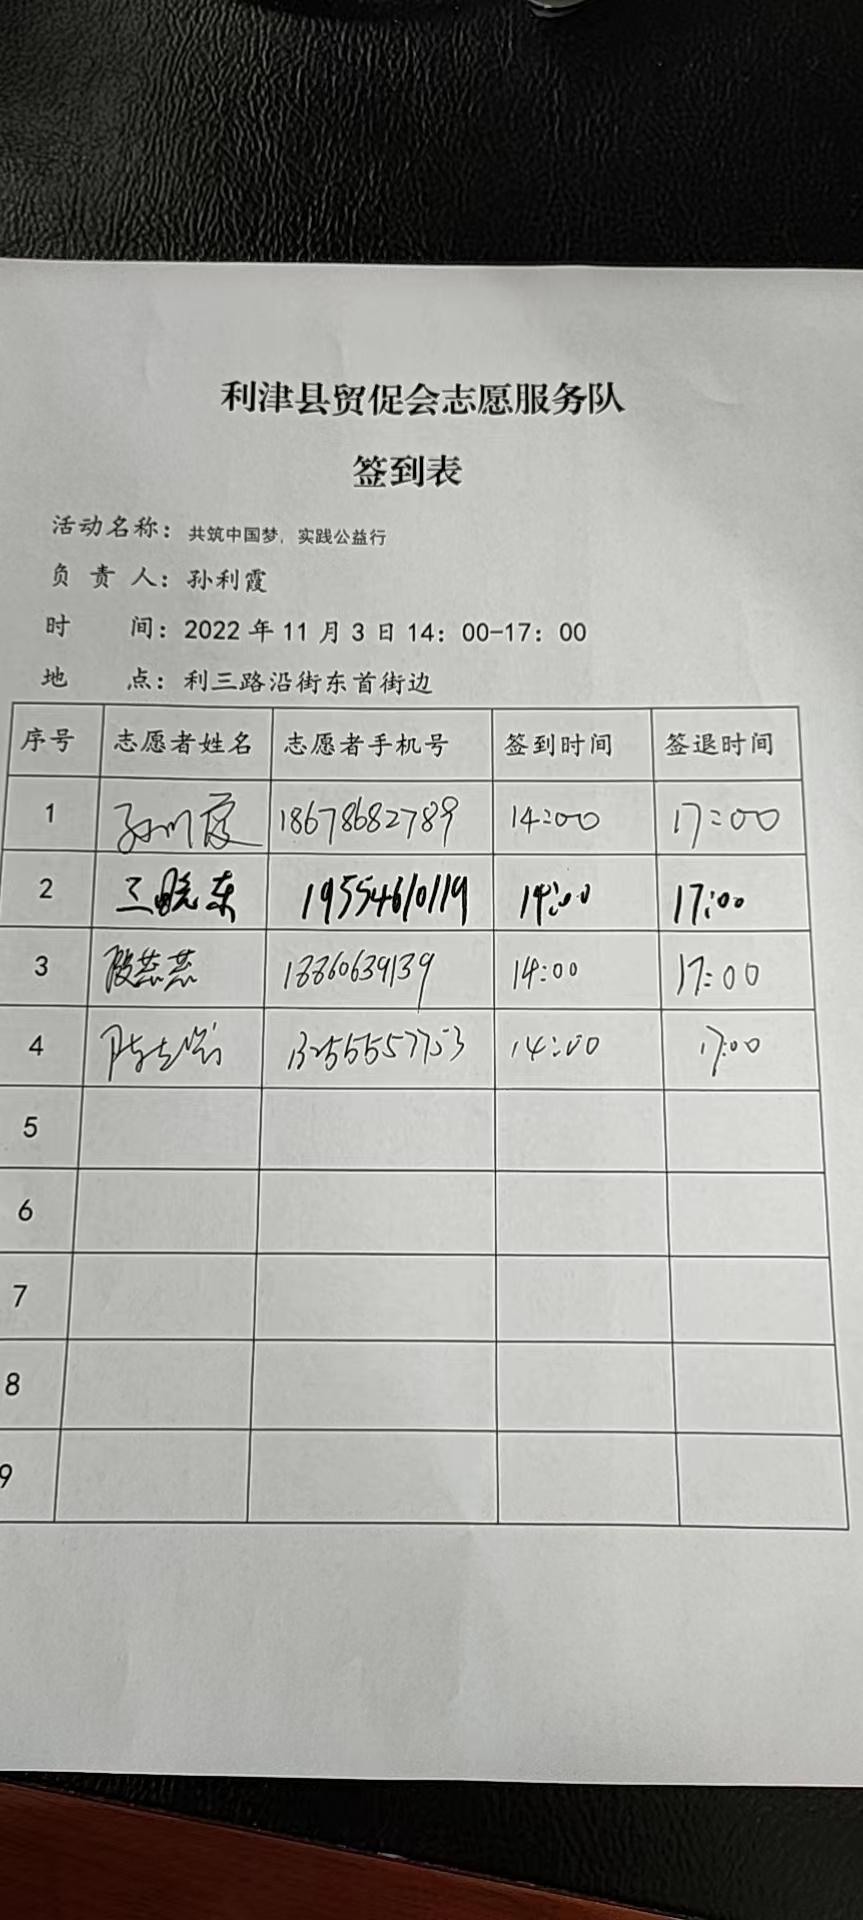 利津县贸促会志愿服务队
签到表
活动名称：共筑中国梦，实践公益行
负 责 人：孙利霞
时 间：2022 年 11 月 3 日 14：00-17：00
地 点：利三路沿街东首街边
序号 志愿者姓名 志愿者手机号 签到时间 签退时间
1 孙利霞 18678682789 14:00 17:00
2 王晓东 19554610119 14:00 17:00
3 殷燕燕 18860639139 14:00 17:00
4 13255557753 14:00 17:00
5
6
7
8
9